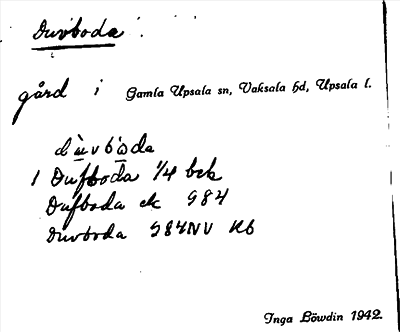 Duvboda
gård i Gamla Upsala sn, Vaksala hd, Upsala l.
dùvbòda
1 Dufboda 1/4 bek
Dufboda ek G84
Duvboda G84NV Kb
Inga Löwdin 1942.